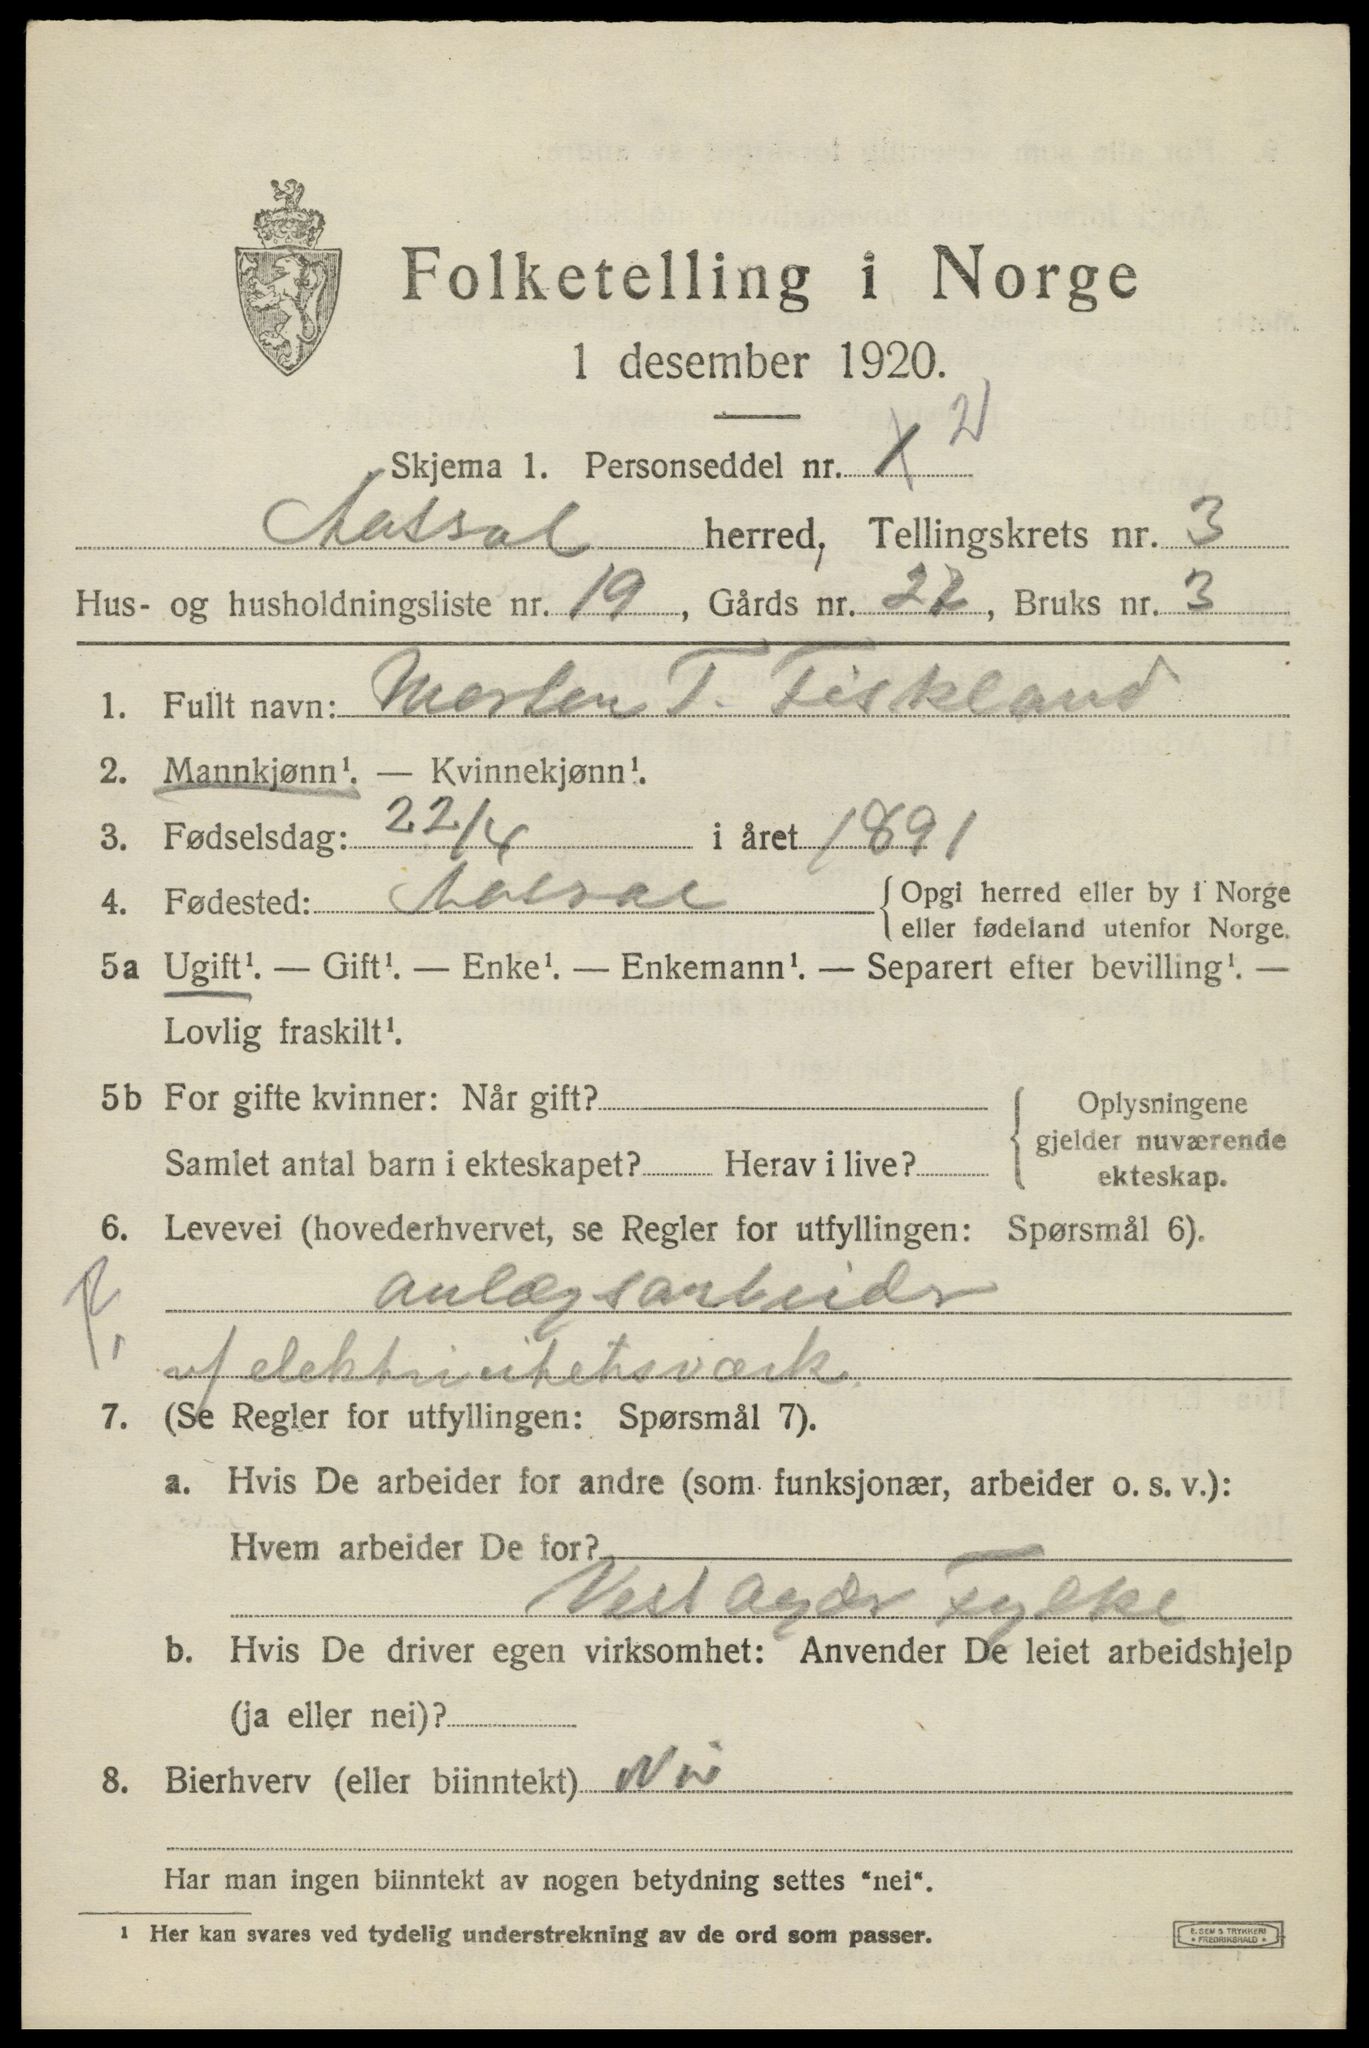 Folketelling i Norge
1 desember 1920.
Skjema 1. Personseddel nr. 1 2
Aaseral herred, Tellingskrets nr. 3
Hus- og husholdningsliste nr. 19, Gårds nr. 22, Bruks nr. 3
1. Fullt navn: Morten T. Fiskland
2. Mannkjønn¹. — Kvinnekjønn¹.
3. Fødselsdag: 22/4 i året 1891
4. Fødested: Aaseral { Opgi herred eller by i Norge
eller fødeland utenfor Norge.
5a Ugift¹. — Gift¹. — Enke¹. — Enkemann¹. — Separert efter bevilling¹. —
Lovlig fraskilt¹.
5b For gifte kvinner: Når gift? { Oplysningene
gjelder nuværende
ekteskap.
Samlet antal barn i ekteskapet? Herav i live?
6. Levevei (hovederhvervet, se Regler for utfyllingen: Spørsmål 6).
anlægsarbeider
v/ elektricitetsværk.
7. (Se Regler for utfyllingen: Spørsmål 7).
a. Hvis De arbeider for andre (som funksjonær, arbeider o. s. v.):
Hvem arbeider De for?
Vest Agder Fylke
b. Hvis De driver egen virksomhet: Anvender De leiet arbeidshjelp
(ja eller nei)?
8. Bierhverv (eller biinntekt) Nei
Har man ingen biinntekt av nogen betydning settes “nei“.
¹ Her kan svares ved tydelig understrekning av de ord som passer.
E. SEM'S TRYKKERI
* FREDRIKSHALD *